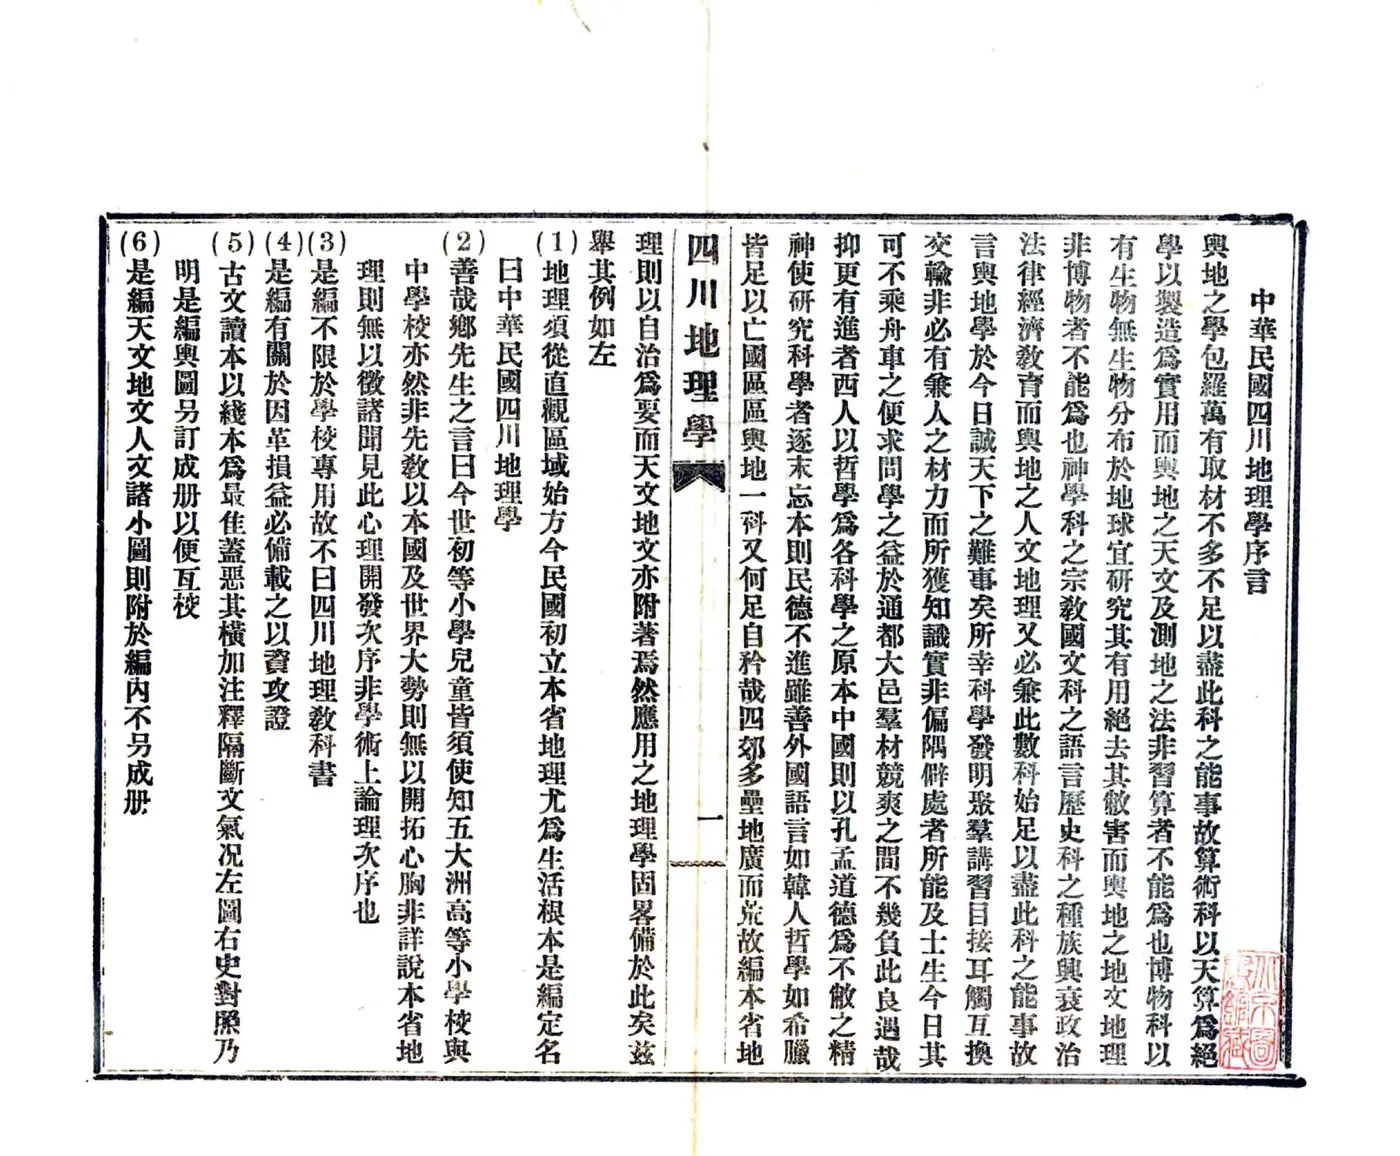 中華民國四川地理學序言
輿地之學包羅萬有取材不多不足以盡此科之能事故算術科以天算爲絕
學以製造爲實用而輿地之天文及測地之法非習算者不能爲也博物科以
有生物無生物分布於地球宜研究其有用絕去其敝害而輿地之地文地理
非博物者不能爲也神學科之宗敎國文科之語言歷史科之種族興衰政治
法律經濟敎育而輿地之人文地理又必兼此數科始足以盡此科之能事故
言輿地學於今日誠天下之難事矣所幸科學發明聚羣講習目接耳觸互換
交輸非必有兼人之材力而所獲知識實非偏隅僻處者所能及士生今日其
可不乘舟車之便求問學之益於通都大邑羣材競爽之間不幾負此良遇哉
抑更有進者西人以哲學爲各科學之原本中國則以孔孟道德爲不敝之精
神使研究科學者逐末忘本則民德不進雖善外國語言如韓人哲學如希臘
皆足以亡國區區輿地一科又何足自矜哉四郊多壘地廣而荒故編本省地
四川地理學
一
理則以自治爲要而天文地文亦附著焉然應用之地理學固畧備於此矣茲
舉其例如左
(1)地理須從直觀區域始方今民國初立本省地理尤爲生活根本是編定名
曰中華民國四川地理學
(2)善哉鄉先生之言曰今世初等小學兒童皆須使知五大洲高等小學校與
中學校亦然非先敎以本國及世界大勢則無以開拓心胸非詳說本省地
理則無以徵諸聞見此心理開發次序非學術上論理次序也
(3)是編不限於學校專用故不曰四川地理敎科書
(4)是編有關於因革損益必備載之以資攻證
(5)古文讀本以綫本爲最佳蓋惡其橫加注釋隔斷文氣况左圖右史對照乃
明是編輿圖另訂成册以便互校
(6)是編天文地文人文諸小圖則附於編內不另成册